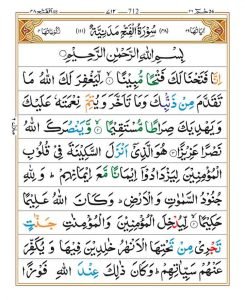 712
سُوْرَةُ الْفَتْحِ مَدَنِيَّةٌ
بِسْمِ اللهِ الرَّحْمٰنِ الرَّحِيْمِ
اِنَّا فَتَحْنَا لَكَ فَتْحًا مُّبِيْنًا ۙ لِّيَغْفِرَ لَكَ اللهُ مَا
تَقَدَّمَ مِنْ ذَنْۢبِكَ وَمَا تَاَخَّرَ وَيُتِمَّ نِعْمَتَهٗ عَلَيْكَ
وَيَهْدِيَكَ صِرَاطًا مُّسْتَقِيْمًا ۙ وَّيَنْصُرَكَ اللهُ
نَصْرًا عَزِيْزًا هُوَ الَّذِيْۤ اَنْزَلَ السَّكِيْنَةَ فِيْ قُلُوْبِ
الْمُؤْمِنِيْنَ لِيَزْدَادُوْۤا اِيْمَانًا مَّعَ اِيْمَانِهِمْ ؕ وَلِلّٰهِ
جُنُوْدُ السَّمٰوٰتِ وَالْاَرْضِ ؕ وَكَانَ اللهُ عَلِيْمًا
حَكِيْمًا ۙ لِّيُدْخِلَ الْمُؤْمِنِيْنَ وَالْمُؤْمِنٰتِ جَنّٰتٍ
تَجْرِيْ مِنْ تَحْتِهَا الْاَنْهٰرُ خٰلِدِيْنَ فِيْهَا وَيُكَفِّرَ
عَنْهُمْ سَيِّاٰتِهِمْ ؕ وَكَانَ ذٰلِكَ عِنْدَ اللهِ فَوْزًا